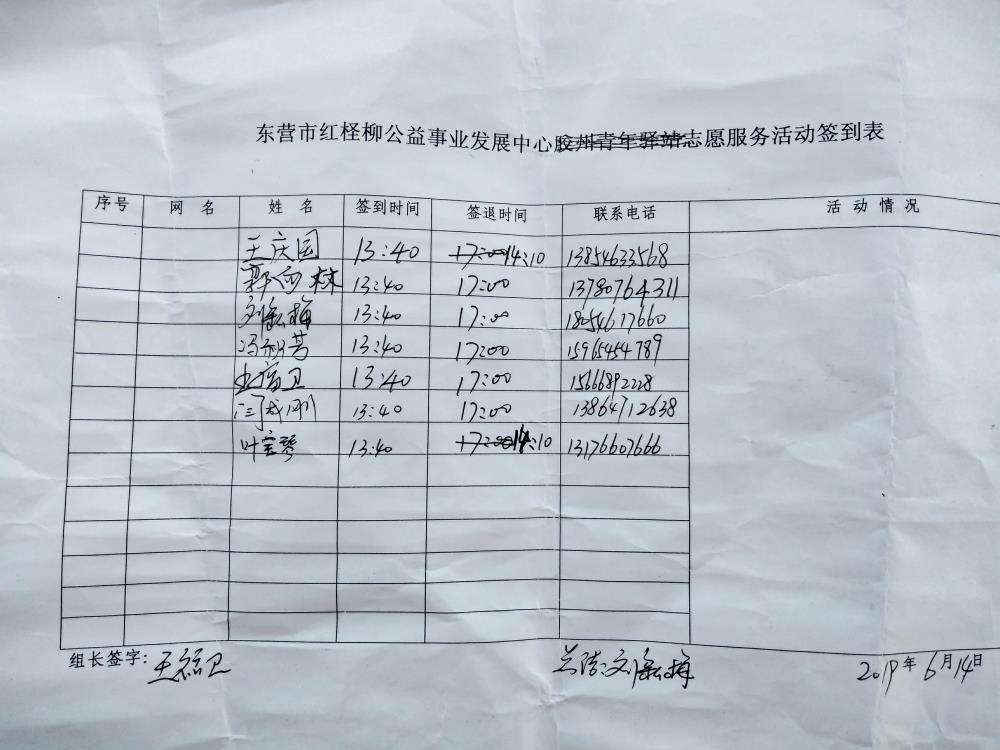 东营市红柽柳公益事业发展中心胶州青年驿站志愿服务活动签到表
序号 网名 姓名 签到时间 签退时间 联系电话 活动情况
王庆国 13:40 17:00 14:10 13854633568
郭向林 13:40 17:00 13780764311
13:40 17:00 18054617660
冯秋芳 13:40 17:00 15965454789
13:40 17:00 15666892228
闫成刚 13:40 17:00 13864712638
叶宝琴 13:40 17:00 14:10 13176607666
组长签字:
2019年6月14日